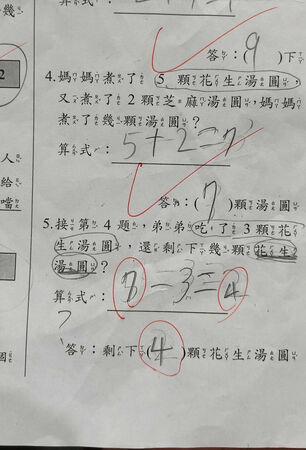 幾
答：(9)下
4.媽媽煮了5顆花生湯圓，
又煮了2顆芝麻湯圓，媽媽
煮了幾顆湯圓？
算式：5+2=7
答：(7)顆湯圓
5.接第4題，弟弟吃了3顆花
生湯圓，還剩下幾顆花生
湯圓？
算式：7-3=4
答：剩下(4)顆花生湯圓
2
人
給
噹
個